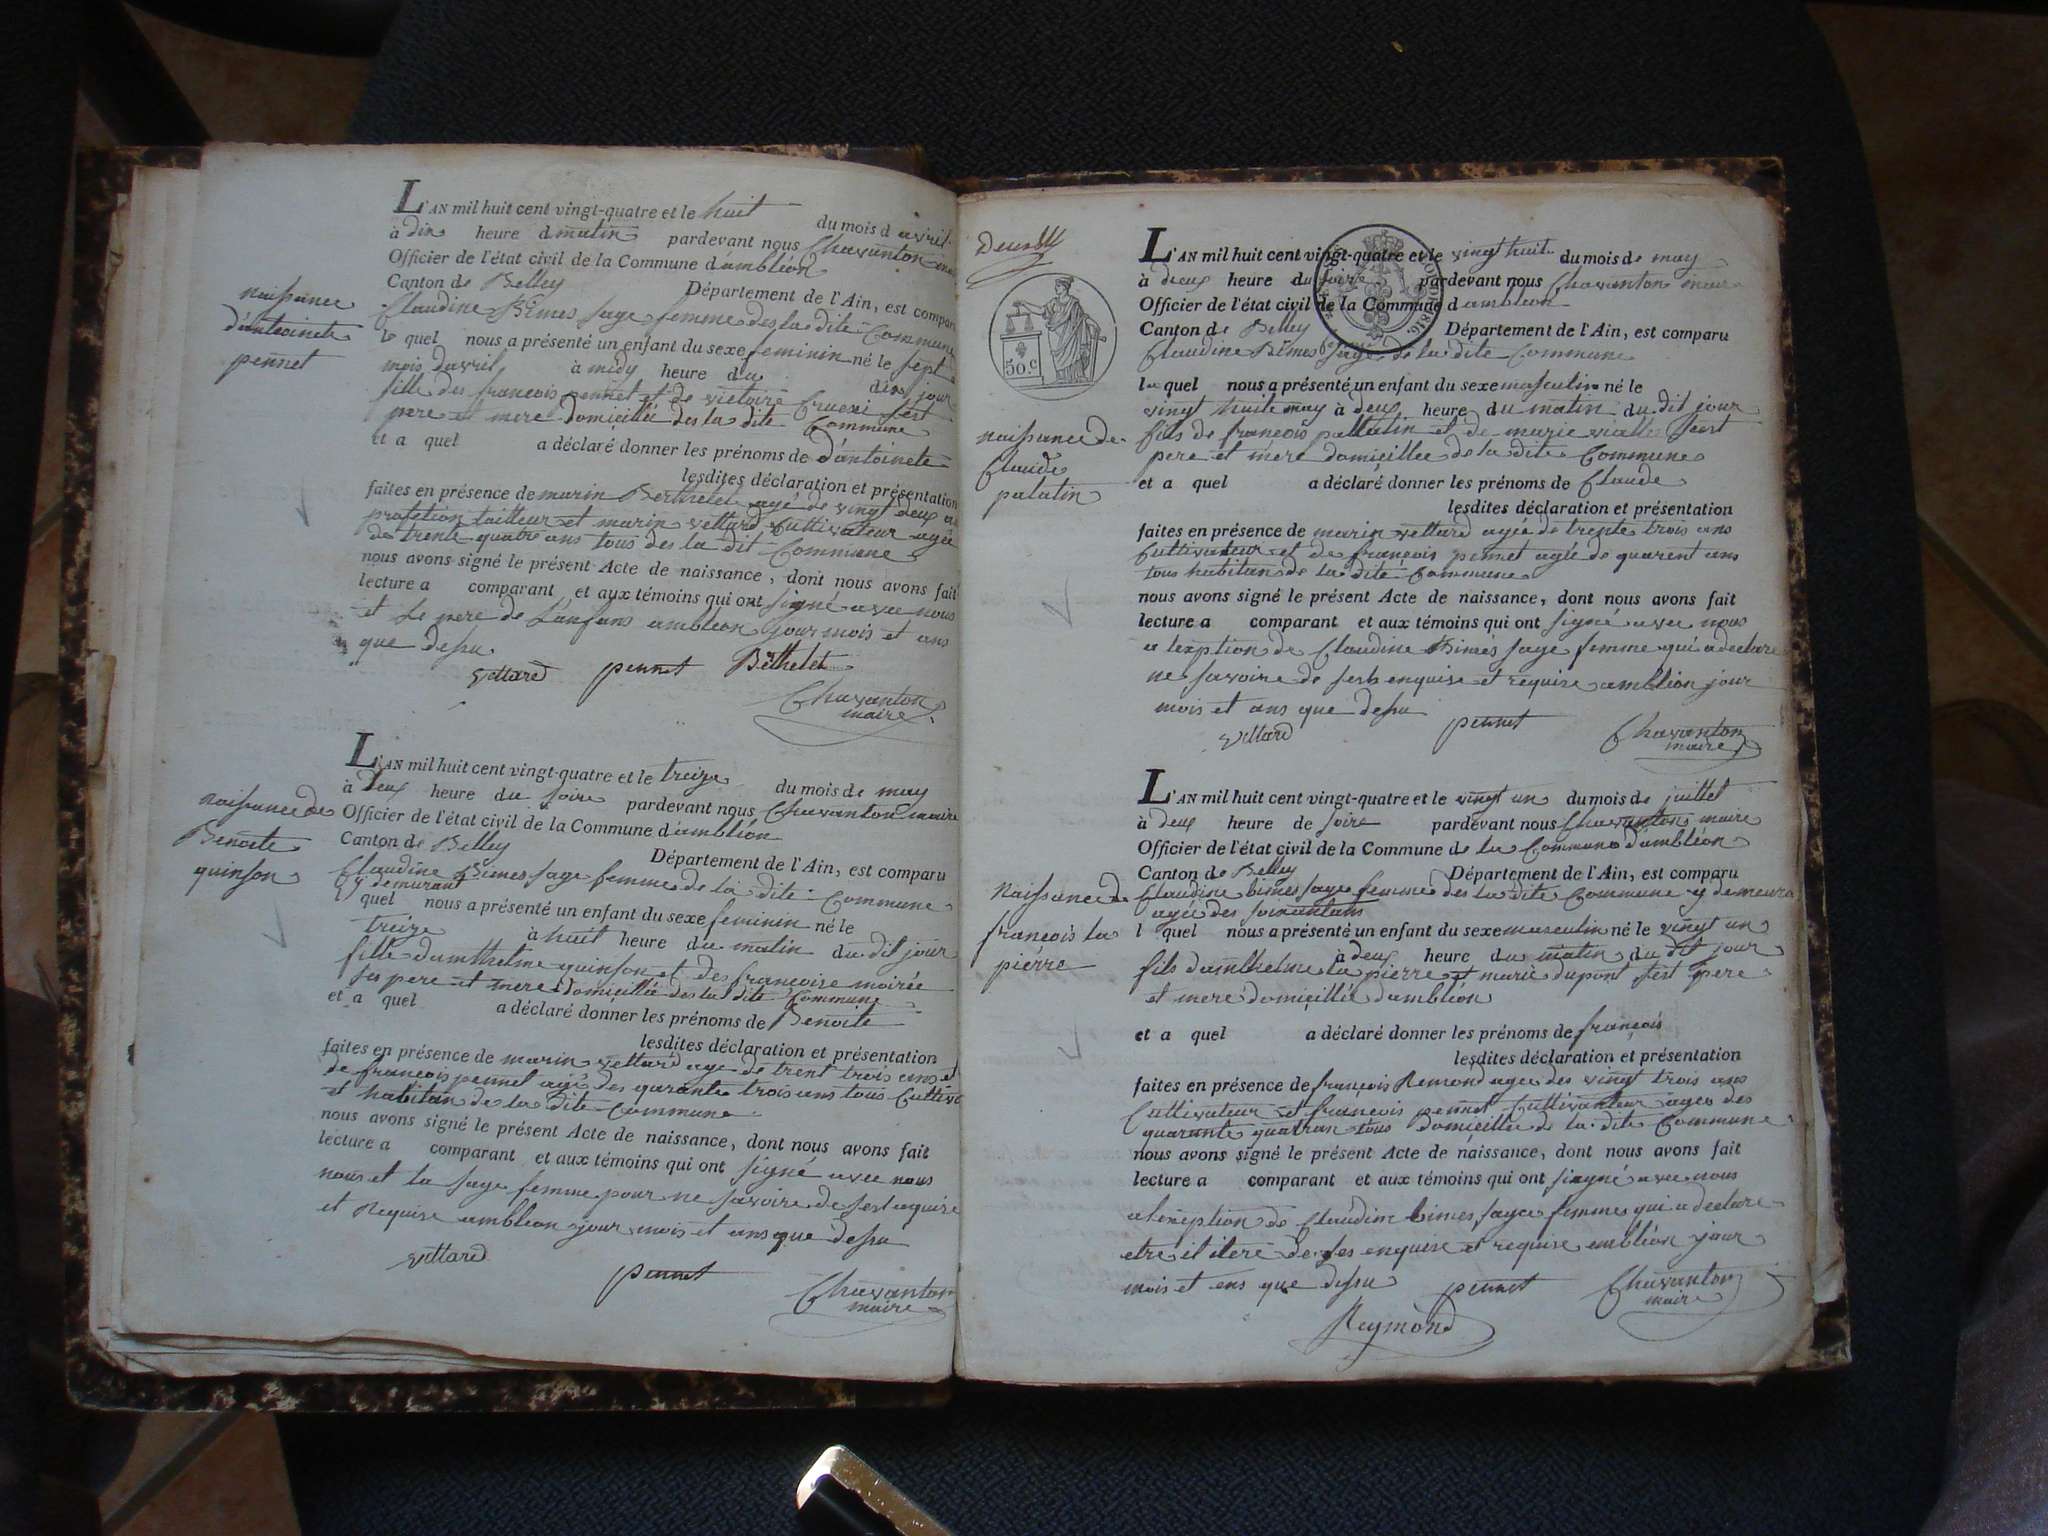 L'AN mil huit cent vingt-quatre et le huit du mois d avril
à dix heure d matin pardevant nous Chavanton
Officier de l'état civil de la Commune d'ambléon
Canton de Belley Département de l'Ain, est comparu
Claudine Bimes sage femme des la dite Commune
l quel nous a présenté un enfant du sexe feminin né le sept
mois davril à midy heure du dit jour
fille des françois pennet et de victoire sest
pere et mere domicillée des la dite Commune
et a quel a déclaré donner les prénoms de d'antoinete
lesdites déclaration et présentation
faites en présence de marin Berthelet agé de vingt deux
profetion tailleur et marin vettard Cultivateur agée
de trente quatre ans tous des la dit Commune
nous avons signé le présent Acte de naissance, dont nous avons fait
lecture a comparant et aux témoins qui ont signé avec nous
et Le pere de L'anfans ambleon jour mois et ans
que dessu
vettard pennet Béthelet
Chavanton
maire
naissance
d'antoinete
pennet
L'AN mil huit cent vingt-quatre et le treize du mois de may
à Deux heure du soire pardevant nous Chavanton maire
Officier de l'état civil de la Commune d'ambléon
Canton de Belley Département de l'Ain, est comparu
Claudine Bimes sage femme de la dite Commune
y demurant
l quel nous a présenté un enfant du sexe feminin né le
treize à huit heure du matin du dit jour
fille damthelme quinson et des francoise moirée
ses pere et mere domicillée des la dite Commune
et a quel a déclaré donner les prénoms de Benoite
lesdites déclaration et présentation
faites en présence de marin vettard age de trent trois ans et
de francois pennet agé des quarante trois ans tous Cultiva
et habitan de la dite Commune
nous avons signé le présent Acte de naissance, dont nous avons fait
lecture a comparant et aux témoins qui ont signé avec nous
nous et la sage femme pour ne savoire de sest enquise
et Requise ambleon jour mois et ans que dessu
vettard
pennet Chavanton
maire
naissance de
Benoite
quinson
Deux
50.c
L'AN mil huit cent vingt-quatre et le vingt huit du mois de may
à deux heure du soire pardevant nous Chavanton maire
Officier de l'état civil de la Commune d ambleon
Canton de Belley Département de l'Ain, est comparu
Claudine Bimes sage de la dite Commune
la quel nous a présenté un enfant du sexe masculin né le
vingt huite may à deux heure du matin du dit jour
fils de francois pallatin et de marie viallet sest
pere et mere domicillee de la dite Commune
et a quel a déclaré donner les prénoms de Claude
lesdites déclaration et présentation
faites en présence de marin vettard agée de trente trois ans
Cultivateur et de françois pennet agé de quarent ans
tous habitan de la dite Commune
nous avons signé le présent Acte de naissance, dont nous avons fait
lecture a comparant et aux témoins qui ont signé avec nous
a lexption de Claudine Bimes sage femme qui a declare
ne savoire de sesh enquise et requise ambléon jour
mois et ans que dessu
vettard pennet Chavanton
maire
naissance de
Claude
palatin
L'AN mil huit cent vingt-quatre et le vingt un du mois de juillet
à deux heure de soire pardevant nous Chavanton maire
Officier de l'état civil de la Commune de la Commune d'ambléon
Canton de Belley Département de l'Ain, est comparu
Claudine bimes sage femme des la dite Commune y demeura
agée des soixantans
l quel nous a présenté un enfant du sexe masculin né le vingt un
à deux heure du matin du dit jour
fils damthelme la pierre et marie dupont sest pere
et mere domicillée d'ambléon
et a quel a déclaré donner les prénoms de françois
lesdites déclaration et présentation
faites en présence de françois Remond agee des vingt trois ans
Cultivateur et françois pennet Cultivanteur agee des
quarante quatran tous Domicillée de la dite Commune
nous avons signé le présent Acte de naissance, dont nous avons fait
lecture a comparant et aux témoins qui ont signé avec nous
a lexception de Claudine bimes sage femme qui a declare
etre il iteré de ses enquise et requise embléon jour
mois et ens que dessu pennet Chavanton
maire
Reymond
Naissance de
françois la
pierre